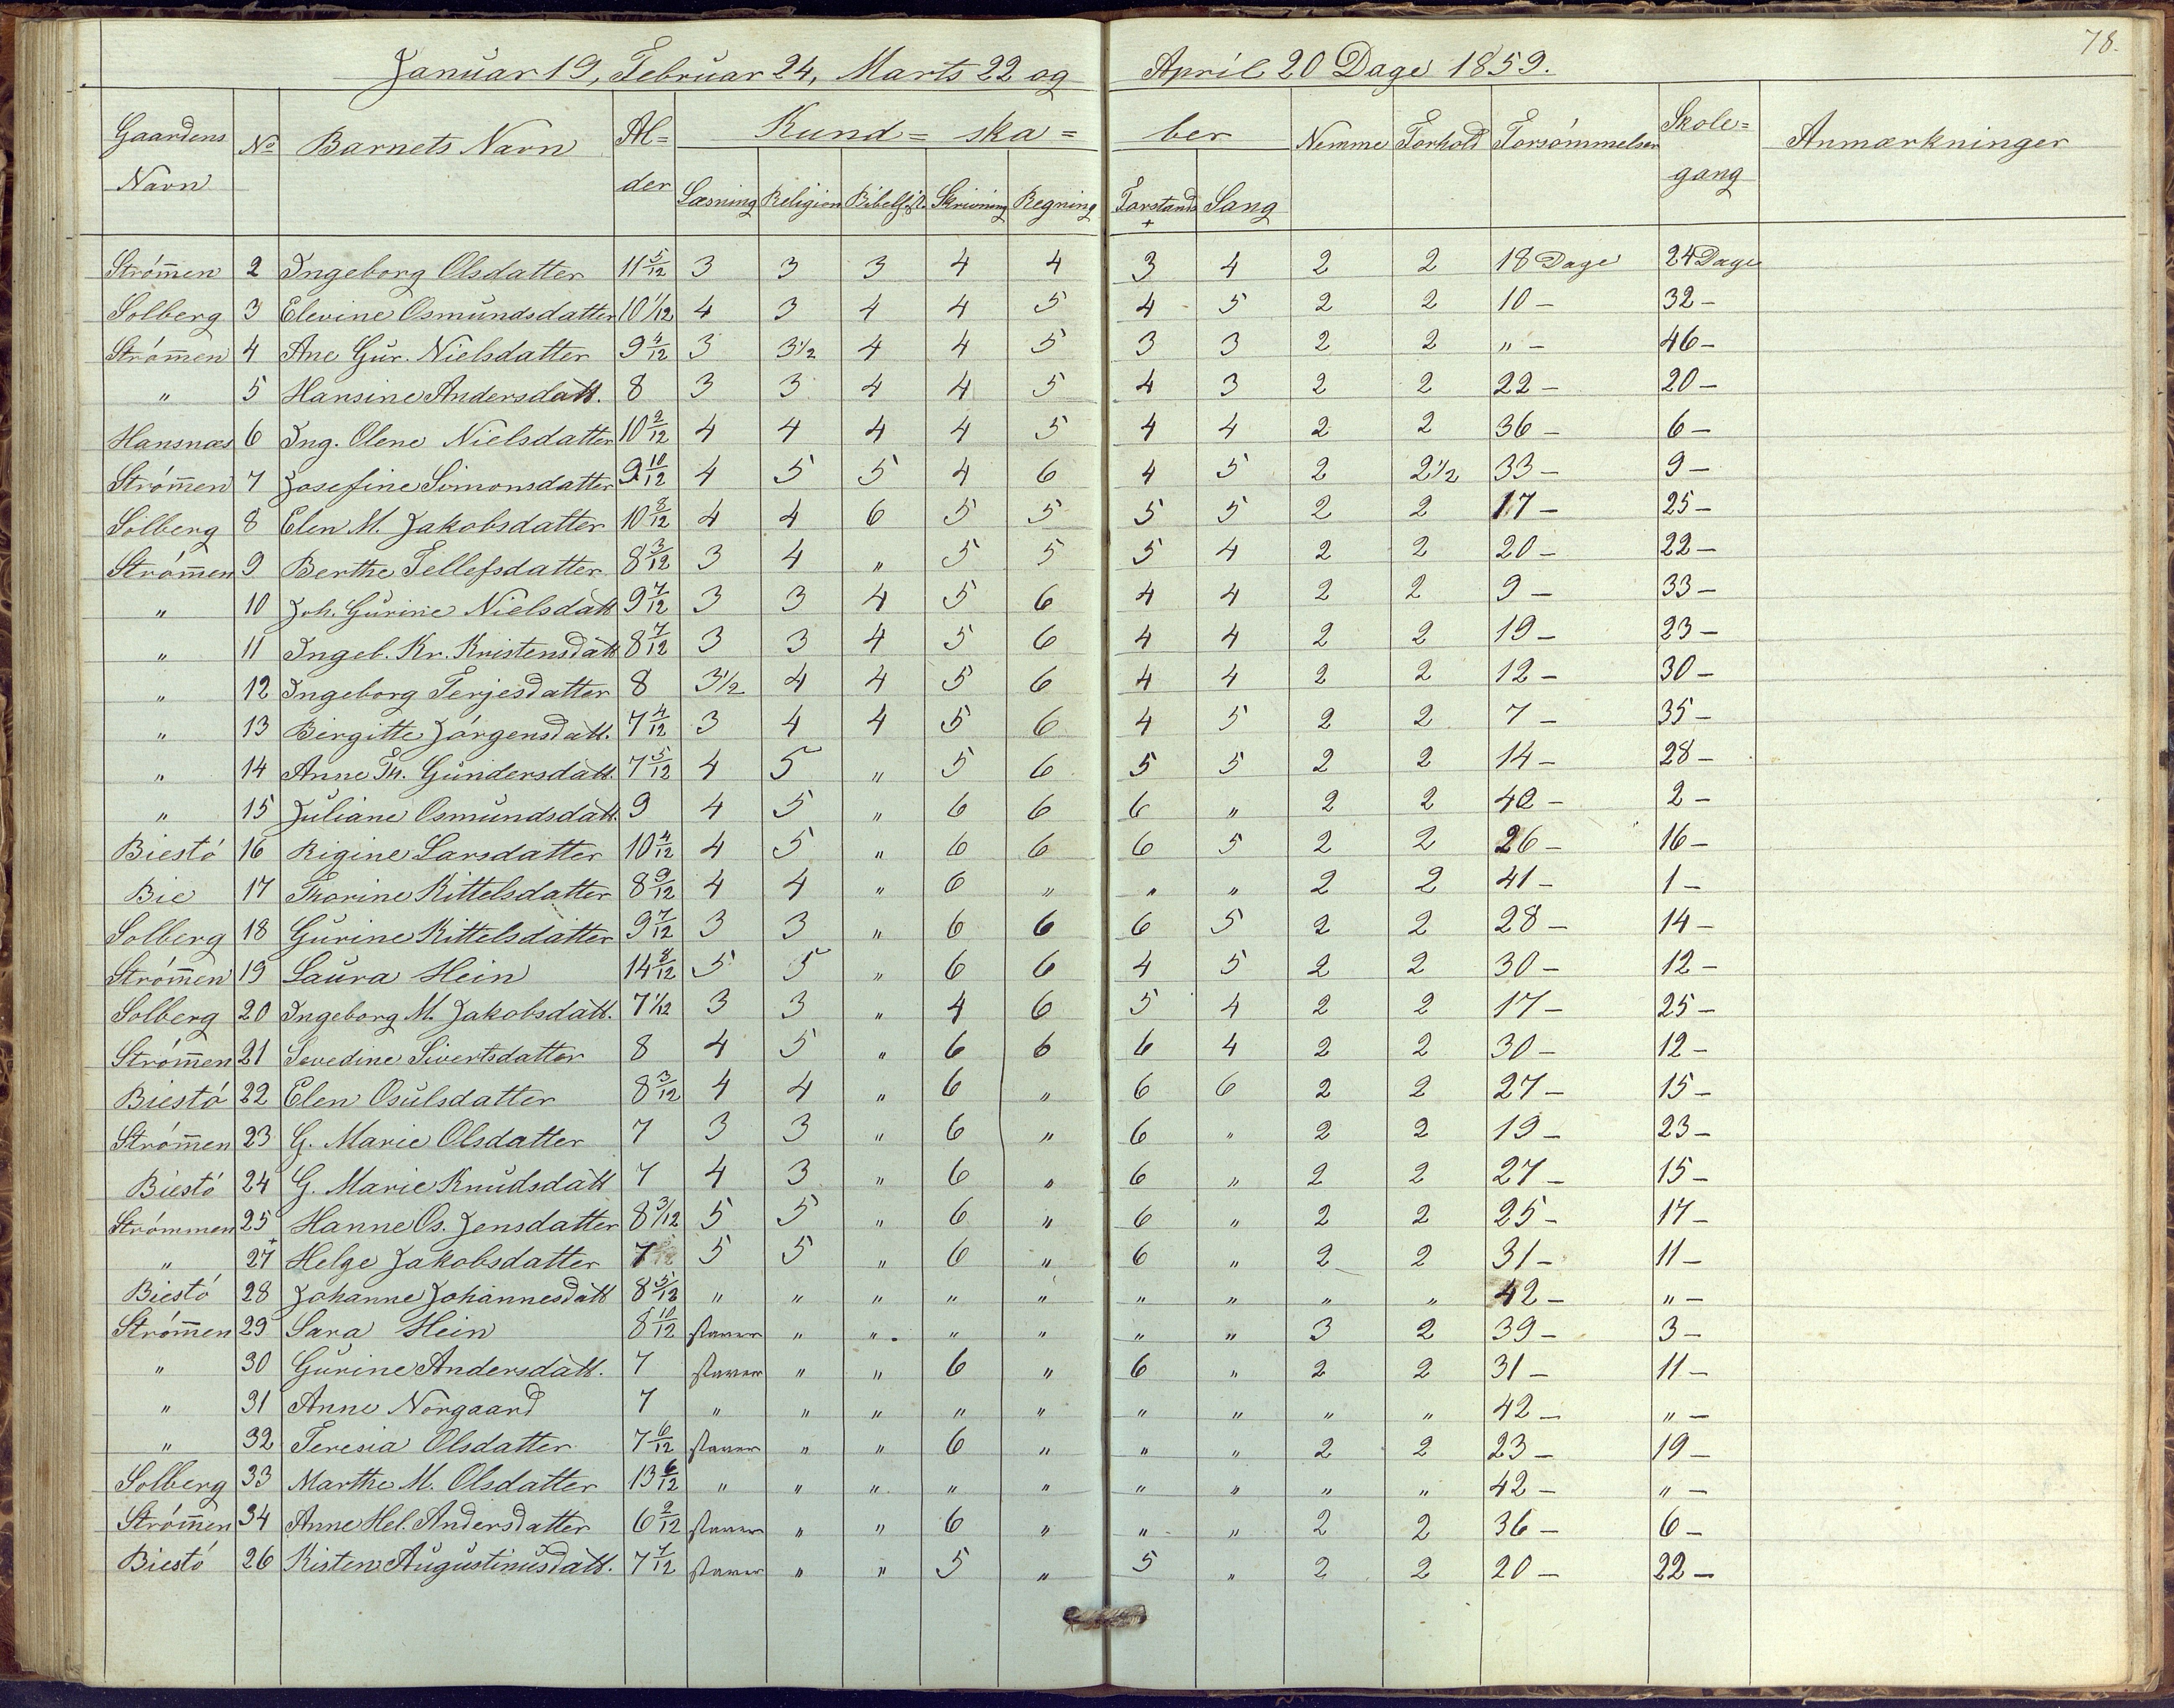 78.
Januar 19, Februar 24, Marts 22 og April 20 Dage 1859.
Gaardens Navn No Barnets Navn Al= der Kund= ska= ber Nemme Forhold Forsömmelser Skole= gang Anmærkninger
Læsning Religion Skrivning Regning Forstands + Sang
Strömen 2 Ingeborg Olsdatter 11 5/12 3 3 3 4 4 3 4 2 2 18 Dage 24 Dage
Solberg 3 Elevine Osmundsdatter 10 1/12 4 3 4 4 5 4 5 2 2 10 – 32 –
Strömen 4 Ane Gur. Nielsdatter 9 4/12 3 3 1/2 4 4 5 3 3 2 2 " – 46 –
" 5 Hansine Andersdatt. 8 3 3 4 4 5 4 3 2 2 22 – 20 –
Hansnæs 6 Ing. Olene Nielsdatter 10 2/12 4 4 4 4 5 4 4 2 2 36 – 6 –
Strömen 7 Josefine Simonsdatter 9 10/12 4 5 5 4 6 4 5 2 2 1/2 33 – 9 –
Solberg 8 Elen M. Jakobsdatter 10 8/12 4 4 6 5 5 5 5 2 2 17 – 25 –
Strömen 9 Berthe Tellefsdatter 8 3/12 3 4 " 5 5 5 4 2 2 20 – 22 –
" 10 Joh. Gurine Nielsdatt 9 7/12 3 3 4 5 6 4 4 2 2 9 – 33 –
" 11 Ingeb. Kr. Kristensdatt 8 7/12 3 3 4 5 6 4 4 2 2 19 – 23 –
" 12 Ingeborg Terjesdatter 8 3 1/2 4 4 5 6 4 4 2 2 12 – 30 –
" 13 Birgitte Jörgensdatt. 7 4/12 3 4 4 5 6 4 5 2 2 7 – 35 –
" 14 Anne Th. Gundersdatt. 7 5/12 4 5 " 5 6 5 5 2 2 14 – 28 –
" 15 Juliane Osmundsdatt. 9 4 5 " 6 6 6 " 2 2 40 – 2 –
Biestö 16 Rigine Larsdatter 10 4/12 4 5 " 6 6 6 5 2 2 26 – 16 –
Bie 17 Thorine Kittelsdatter 8 9/12 4 4 " 6 " " " 2 2 41 – 1 –
Solberg 18 Gurine Kittelsdatter 9 7/12 3 3 " 6 6 6 5 2 2 28 – 14 –
Strömen 19 Laura Hein 14 8/12 5 5 " 6 6 4 5 2 2 30 – 12 –
Solberg 20 Ingeborg M. Jakobsdatt. 7 1/12 3 3 " 4 6 5 4 2 2 17 – 25 –
Strömen 21 Sevedine Sivertsdatter 8 4 5 " 6 6 6 4 2 2 30 – 12 –
Biestö 22 Elen Osulsdatter 8 3/12 4 4 " 6 " 6 6 2 2 27 – 15 –
Strömen 23 G. Marie Olsdatter 7 3 3 " 6 " 6 " 2 2 19 – 23 –
Biestö 24 G. Marie Knudsdatt 7 4 3 " 6 " 6 " 2 2 27 – 15 –
Strömmen 25 Hanne Os. Jensdatter 8 3/12 5 5 " 6 " 6 " 2 2 25 – 17 –
" + 27 Helge Jakobsdatter 7 5 5 " 6 " 6 " 2 2 31 – 11 –
Biestö 28 Johanne Johannesdatt 8 5/12 " " " " " " " " " 42 – " –
Strömen 29 Sara Hein 8 10/12 staver " " " " " " 3 2 39 – 3 –
" 30 Gurine Andersdatt. 7 staver " " 6 " 6 " 2 2 31 – 11 –
" 31 Anne Norgaard 7 " " " " " " " " " 42 – " –
" 32 Teresia Olsdatter 7 6/12 staver " " 6 " " " 2 2 23 – 19 –
Solberg 33 Marthe M. Olsdatter 13 6/12 " " " " " " " " " 42 – " –
Strömen 34 Anne Hel. Andersdatter 6 2/12 staver " " 6 " " " 2 2 36 – 6 –
Biestö 26 Kisten Augustinusdatt. 7 7/12 staver " " 5 " 5 " 2 2 20 – 22 –